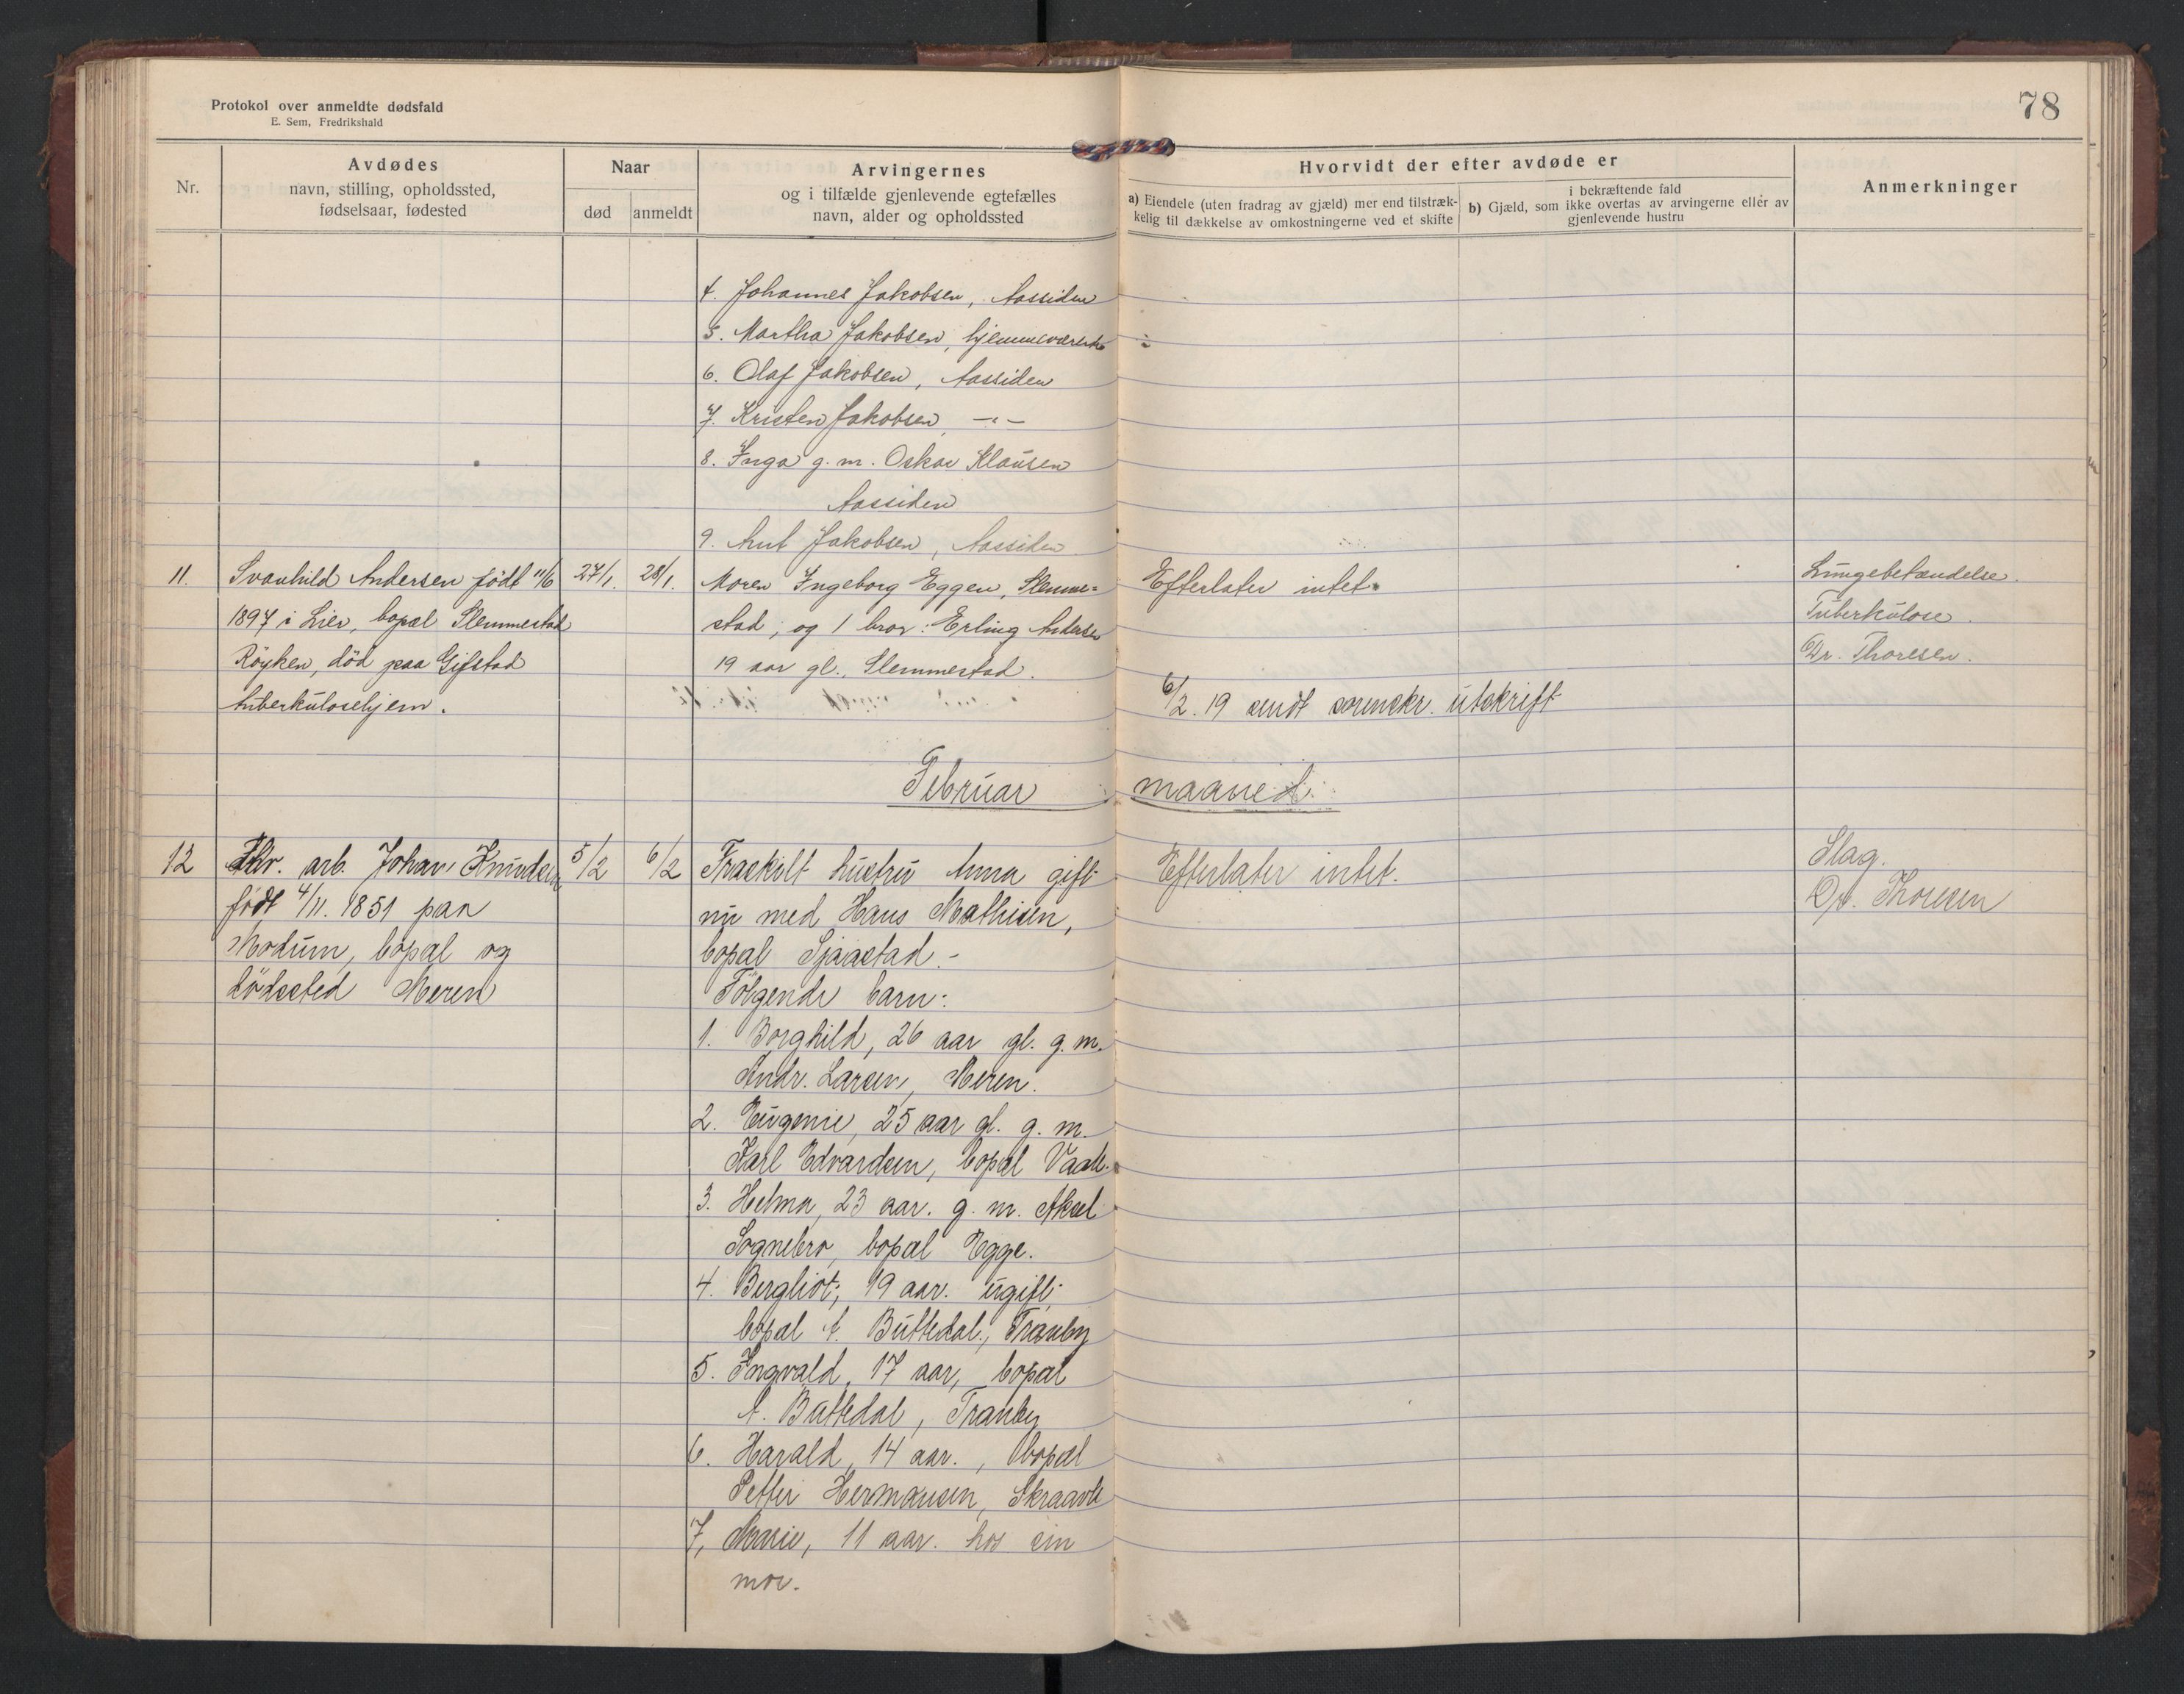 Protokol over anmeldte dødsfald
E. Sem, Fredrikshald
78
Nr.
Avdødes
navn, stilling, opholdssted,
fødselsaar, fødested
Naar
død
anmeldt
Arvingernes
og i tilfælde gjenlevende egtefælles
navn, alder og opholdssted
Hvorvidt der efter avdøde er
a) Eiendele (uten fradrag av gjæld) mer end tilstræk-
kelig til dækkelse av omkostningerne ved et skifte
i bekræftende fald
b) Gjæld, som ikke overtas av arvingerne eller av
gjenlevende hustru
Anmerkninger
4. Johannes Jakobsen, Aassiden
5. Martha Jakobsen, hjemmeværende
6. Olaf Jakobsen, Aassiden
7. Kristen Jakobsen, -"-
8. Inga g. m. Oskar Klausen
Aassiden
9. Jakobsen, Aassiden
11.
Svanhild Andersen født 11/6
1897 i Lier, bopæl Slemmestad
Røyken, død paa Gifstad
tuberkulosehjem.
27/1.
28/1.
Moren Ingeborg Eggen, Slemme=
stad, og 1 bror: Erling Andersen
19 aar gl., Slemmestad.
Efterlater intet.
6/2. 19 sendt sorenskr. utskrift
Lungebetændelse.
Tuberkulose.
Dr. Thoresen.
Februar maaned.
12
arb. Johan Knudsen
født 4/11. 1851 paa
Modum, bopæl og
dödssted Meren
5/2
6/2
Fraskilt hustru Anna gift
nu med Hans Mathisen,
bopæl Sjaastad.-
Følgende barn:
1. Borghild, 26 aar gl. g. m.
Andr. Larsen, Meren.
2. Eugenie, 25 aar gl. g. m.
Karl Edvardsen, bopæl
3. Helma, 23 aar. g. m. Aksel
Sognebro, bopæl Egge.
4. Bergliot, 19 aar. ugift,
bopæl A. Buttedal, Tranby
5. Ingvald, 17 aar, bopæl
A. Buttedal, Tranby
6. Harald, 14 aar., bopæl
Petter Hermansen,
7, Marie, 11 aar. hos sin
mor.
Efterlater intet.
Slag.
Dr. Thoresen